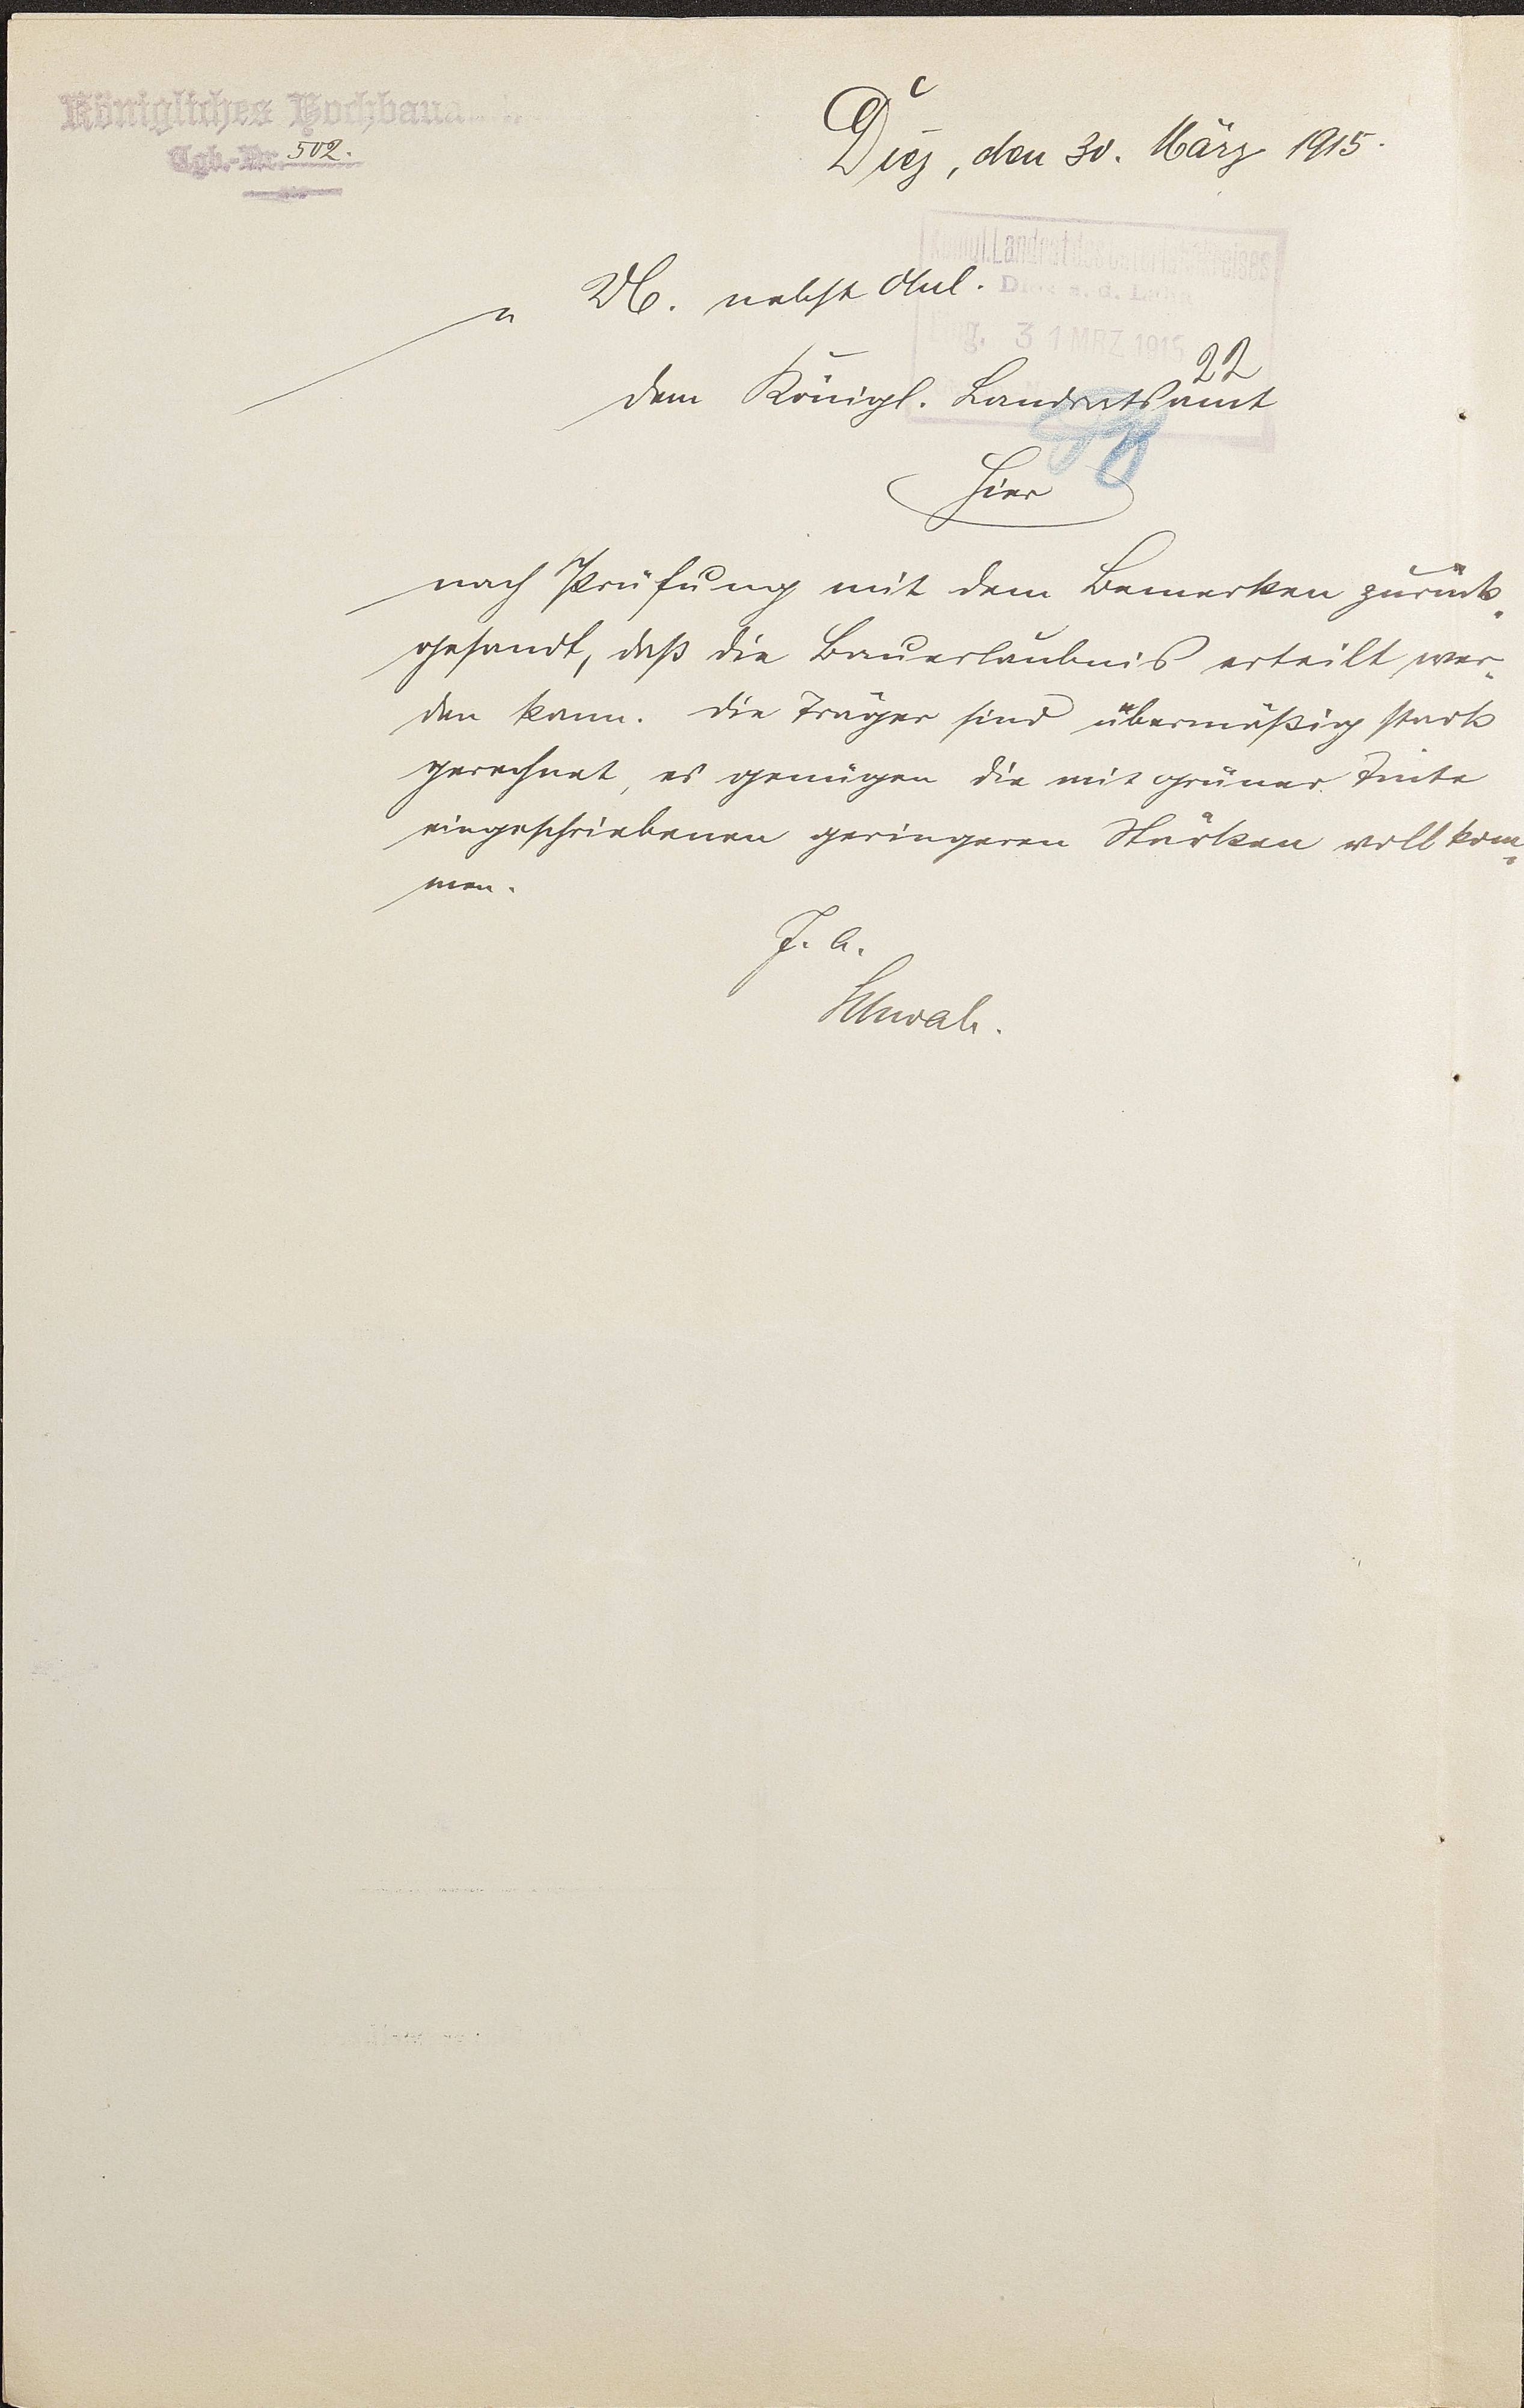 Königliches Hochbauamt
Tgb.-Nr. 502.
Diez, den 30. März 1915.
Königl. Landrat des Unterlahnkreises
Diez a. d. Lahn
Eing. 31 MRZ 1915
U. nebst Anl.
22
dem Königl. Landratsamt
Hier
nach Prüfung mit dem Bemerken zurück-
gesandt, daß die Bauerlaubnis erteilt wer-
den kann. Die Träger sind übermäßig stark
gerechnet, es genügen die mit grüner Tinte
eingeschriebenen geringeren Stärken vollkom-
men.
J. A.